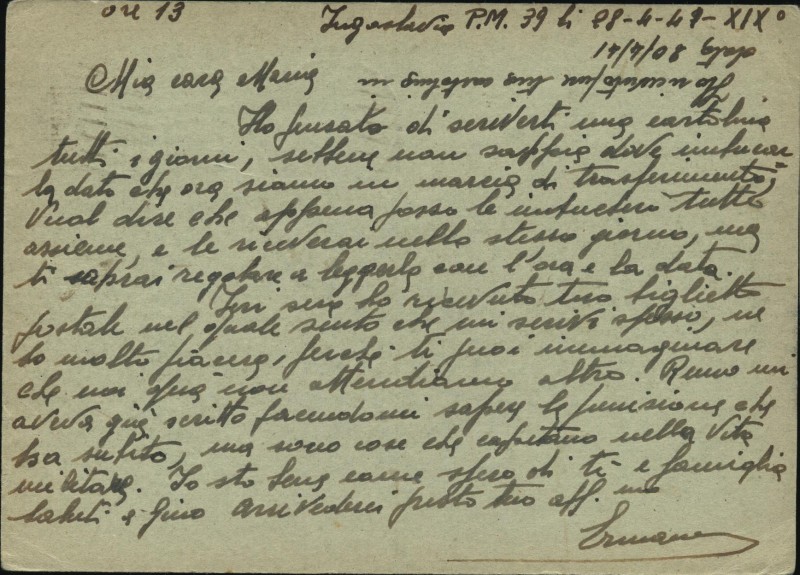 ore 13
Jugoslavia P.M. 39 li 28-4-41-XIX°
Ho ricevuto una tua cartolina in
data 08/4/41
Mia cara Maria
Ho pensato di scriverti una cartolina
tutti i giorni, sebbene non sappia dove imbucar
la dato che ora siamo in marcia di trasferimento,
Vual dire che appena posso le imbucherò tutte
assieme, e le riceverai nello stesso giorno, ma
ti saprai regolare a leggerla con l'ora e la data.
Ieri sera ho ricevuto tuo biglietto
postale nel quale sento che mi scrivi spesso, ne
ho molto piacere, perché ti puoi immaginare
che noi quà non attendiamo altro. Remo mi
aveva già scritto facendomi sapere la punizione che
ha subito, ma sono cose che capitano nella vita
militare. Io sto bene come spero di ti e famiglia
Saluti e Gino Arrivederci presto tuo aff. mo
Ermanno